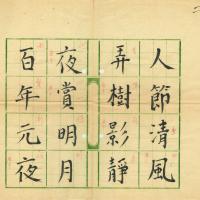 人節清風
弄樹影靜
夜賞明月
百年元夜